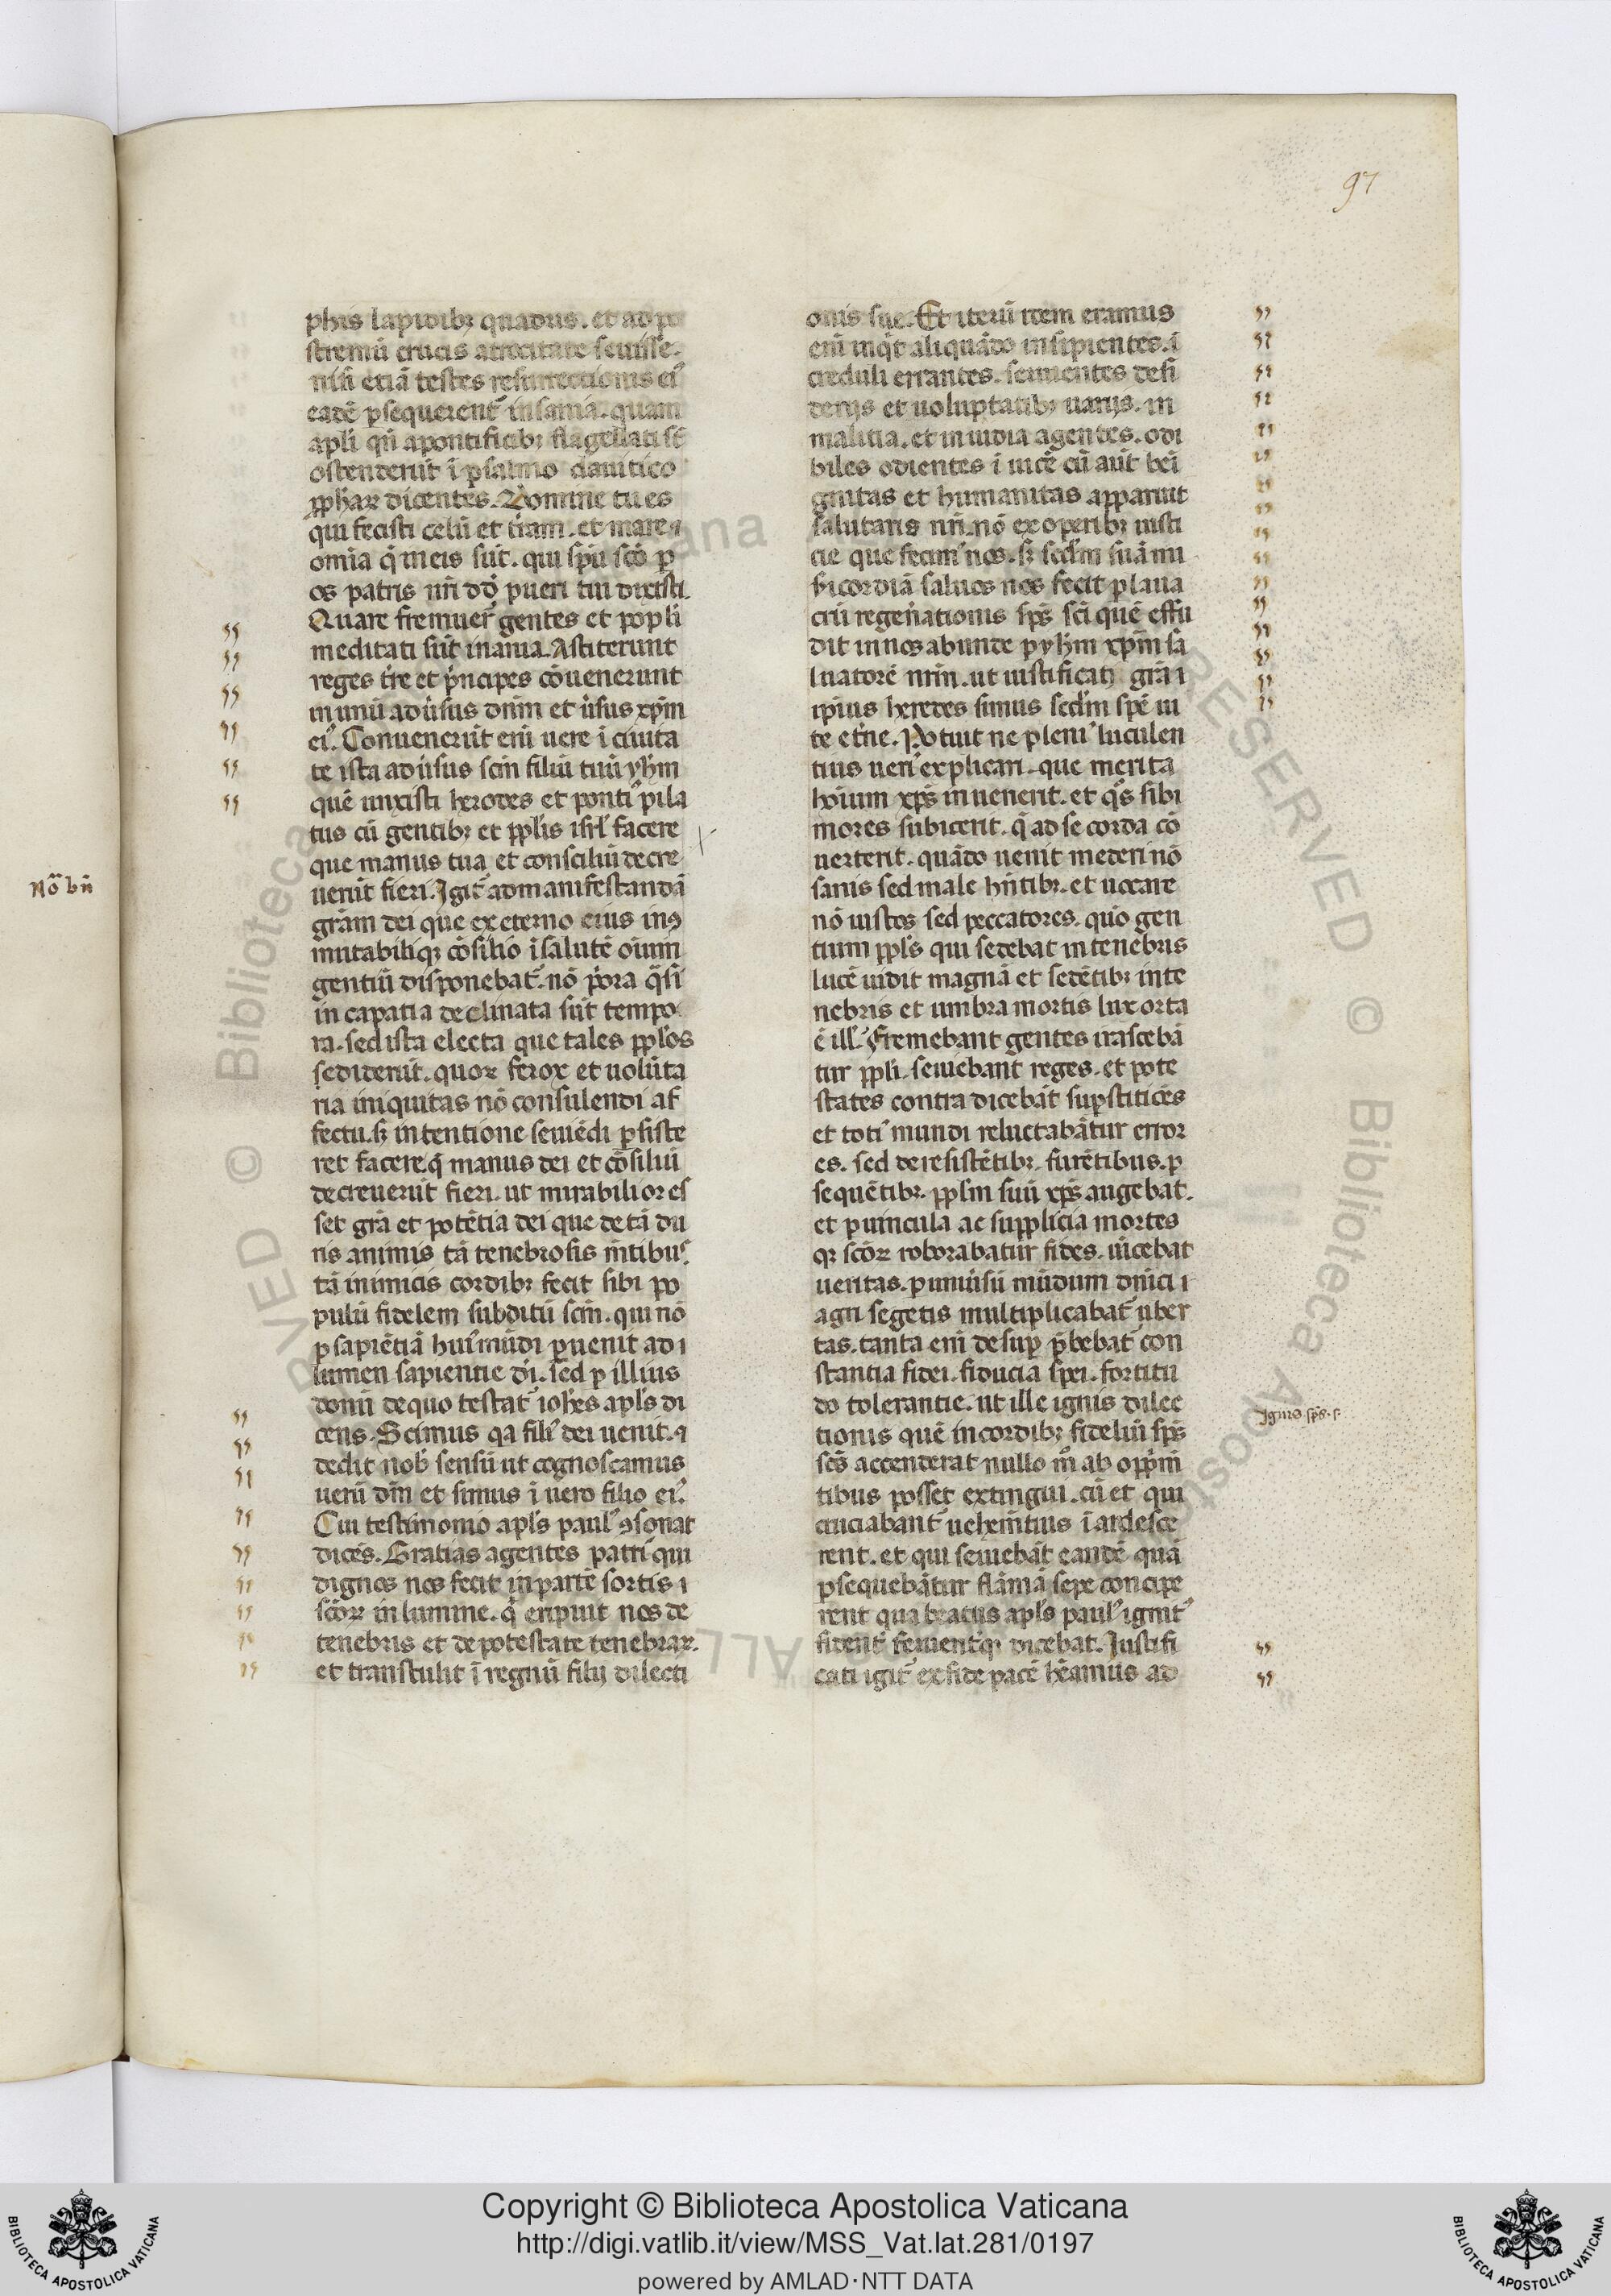 97
phis lapidibꝫ quadris. et ad po
stremū crucis atrocitate seuisse.
nisi etiā testes resurrectionis ei᷒
eadē ꝑsequerent᷑ insania. quam
apli qn̄ a pontificibꝫ flagellati st̄
ostenderūt ī psalmo dauitico
ꝓphaꝝ dicentes. Domine tu es
qui fecisti celū et t̄ram. et mare ⁊
om̄ia q̄ in eis sūt. qui sp̄u sc̄o ꝑ
os patris nr̄i dd̄ pueri tui dixisti.
Quare fremuer̄ gentes et popli
meditati sūt inania. Astiterunt
reges t̄re et p̄ncipes cōuenerunt
in unū adūsus dn̄m et ūsus xp̄m
ei᷒. Conuenerūt eni uere ī ciuita
te ista adūsus scm̄ filiū tuū yhm̄
quē unxisti herodes et ponti᷒ pila
tus cū gentibꝫ et ppl̄is isrl̄ facere
que manus tua et consciliū decre
uerūt fieri. Igit᷑ ad manifestandā
grām dei que ex eterno eius in ꝯ
mutabiliqꝫ cōsilio ī salutē oīum
gentiū disponebat᷑. nō p̄ora q̄si
in capatia declinata sūt tempo
ra. sed ista electa que tales ppl̄os
sediderūt. quoꝝ ferox et uolūta
ria iniquitas nō consulendi af
fectu. sꝫ intentione seuiēdi ꝑsiste
ret facere. q̄ manus dei et cōsiliū
decreuerūt fieri. ut mirabilior es
set grā et potētia dei que de tā du
ris animis tā tenebrosis m̄tibus
tā inimicis cordibꝫ fecit sibi po
pulū fidelem subditū scm̄. qui nō
ꝑ sapiētiā hui᷒ mūdi ꝑuenit ad ı
lumen sapientie dī. sed ꝑ illius
donū de quo testat᷑ ioh̄es apls̄ di
cens. Scimus qa fili᷒ dei uenit. ⁊
dedit nob̄ sensū ut cognoscamus
uerū dm̄ et simus ī uero filio ei᷒.
Cui testimonio apls̄ paul᷒ ꝯsonat
dicēs. Gratias agentes patri qui
dignos nos fecit in partē sortis ı
scōꝝ in lumine. q̄ eripuit nos de
tenebris et de potestate tenebraꝝ.
et transtulit ī regnū filij dilecti
onis sue. Et iterū item eramus
enī inq̄t aliquādo insipientes. ī
creduli errantes. seruientes desi
derijs et uoluptatibꝫ uarijs. in
malitia. et inuidia agentes. odi
biles odientes ī uicē cū aūt beī
gnitas et humanitas apparuit
salutaris nr̄i. nō ex operibꝫ iusti
cie que fecim᷒ nos. sꝫ scd̄m suā mi
sīcordiā saluos nos fecit ꝑ laua
crū regen̄ationis sps̄ sc̄i quē effu
dit in nos abunde ꝑ yhm̄ xp̄m sa
luatorē nr̄m. ut iustificati grā ı
ipsius heredes simus scd̄m spē ui
te et̄ne. Potuit ne pleni᷒ luculen
tius ueri᷒ explicari. que merita
hoīum xps̄ inuenerit. et qo̅s sibi
mores subicerit. q̄ ad se corda cō
uerterit. quādo uenit mederi nō
sanis sed male hn̄tibꝫ. et uocare
nō iustos sed peccatores. quō gen
tium ppls̄ qui sedebat in tenebris
lucē uidit magnā et sedētibꝫ in te
nebris et umbra mortis lux orta
ē ill᷒. Fremebant gentes irascebā
tur ppli. seuiebant reges. et pote
states contra dicebāt suꝑstitiōes
et toti᷒ mundi reluctabātur error
es. sed de resistētibꝫ. furētibus. ꝑ
sequētibꝫ. pplm̄ suū xps̄ augebat.
et ꝑ uincula ac supplicia mortes
qꝫ scōꝝ roborabatur fides. uīcebat
ueritas. ꝑ uniūsū mūdum dn̄ici ı
agri segetis multiplicabat᷑ uber
tas. tanta eni desuꝑ p̄bebat᷑ con
stantia fidei. fiducia spei. fortitu
do tolerantie. ut ille ignis dilec
tionis quē in cordibꝫ fideliū sps̄
scs̄ accenderat nullo mō ab opp̄m̄
tibus posset extingui. cū et qui
cruciabant᷑ uehem̄tius īardesce
rent. et qui seuiebāt eandē quā
ꝑsequebātur flāmā sepe concipe
rent qua beatus apls̄ paul᷒ ignit᷒
fident᷑ feruent᷑qꝫ dicebat. Iustifi
cati igit᷑ ex fide pacē hēamus ad
Nō bn̄
Ignis sps̄. s.
Copyright © Biblioteca Apostolica Vaticana
http://digi.vatlib.it/view/MSS_Vat.lat.281/0197
powered by AMLAD·NTT DATA
BIBLIOTECA APOSTOLICA VATICANA
BIBLIOTECA APOSTOLICA VATICANA